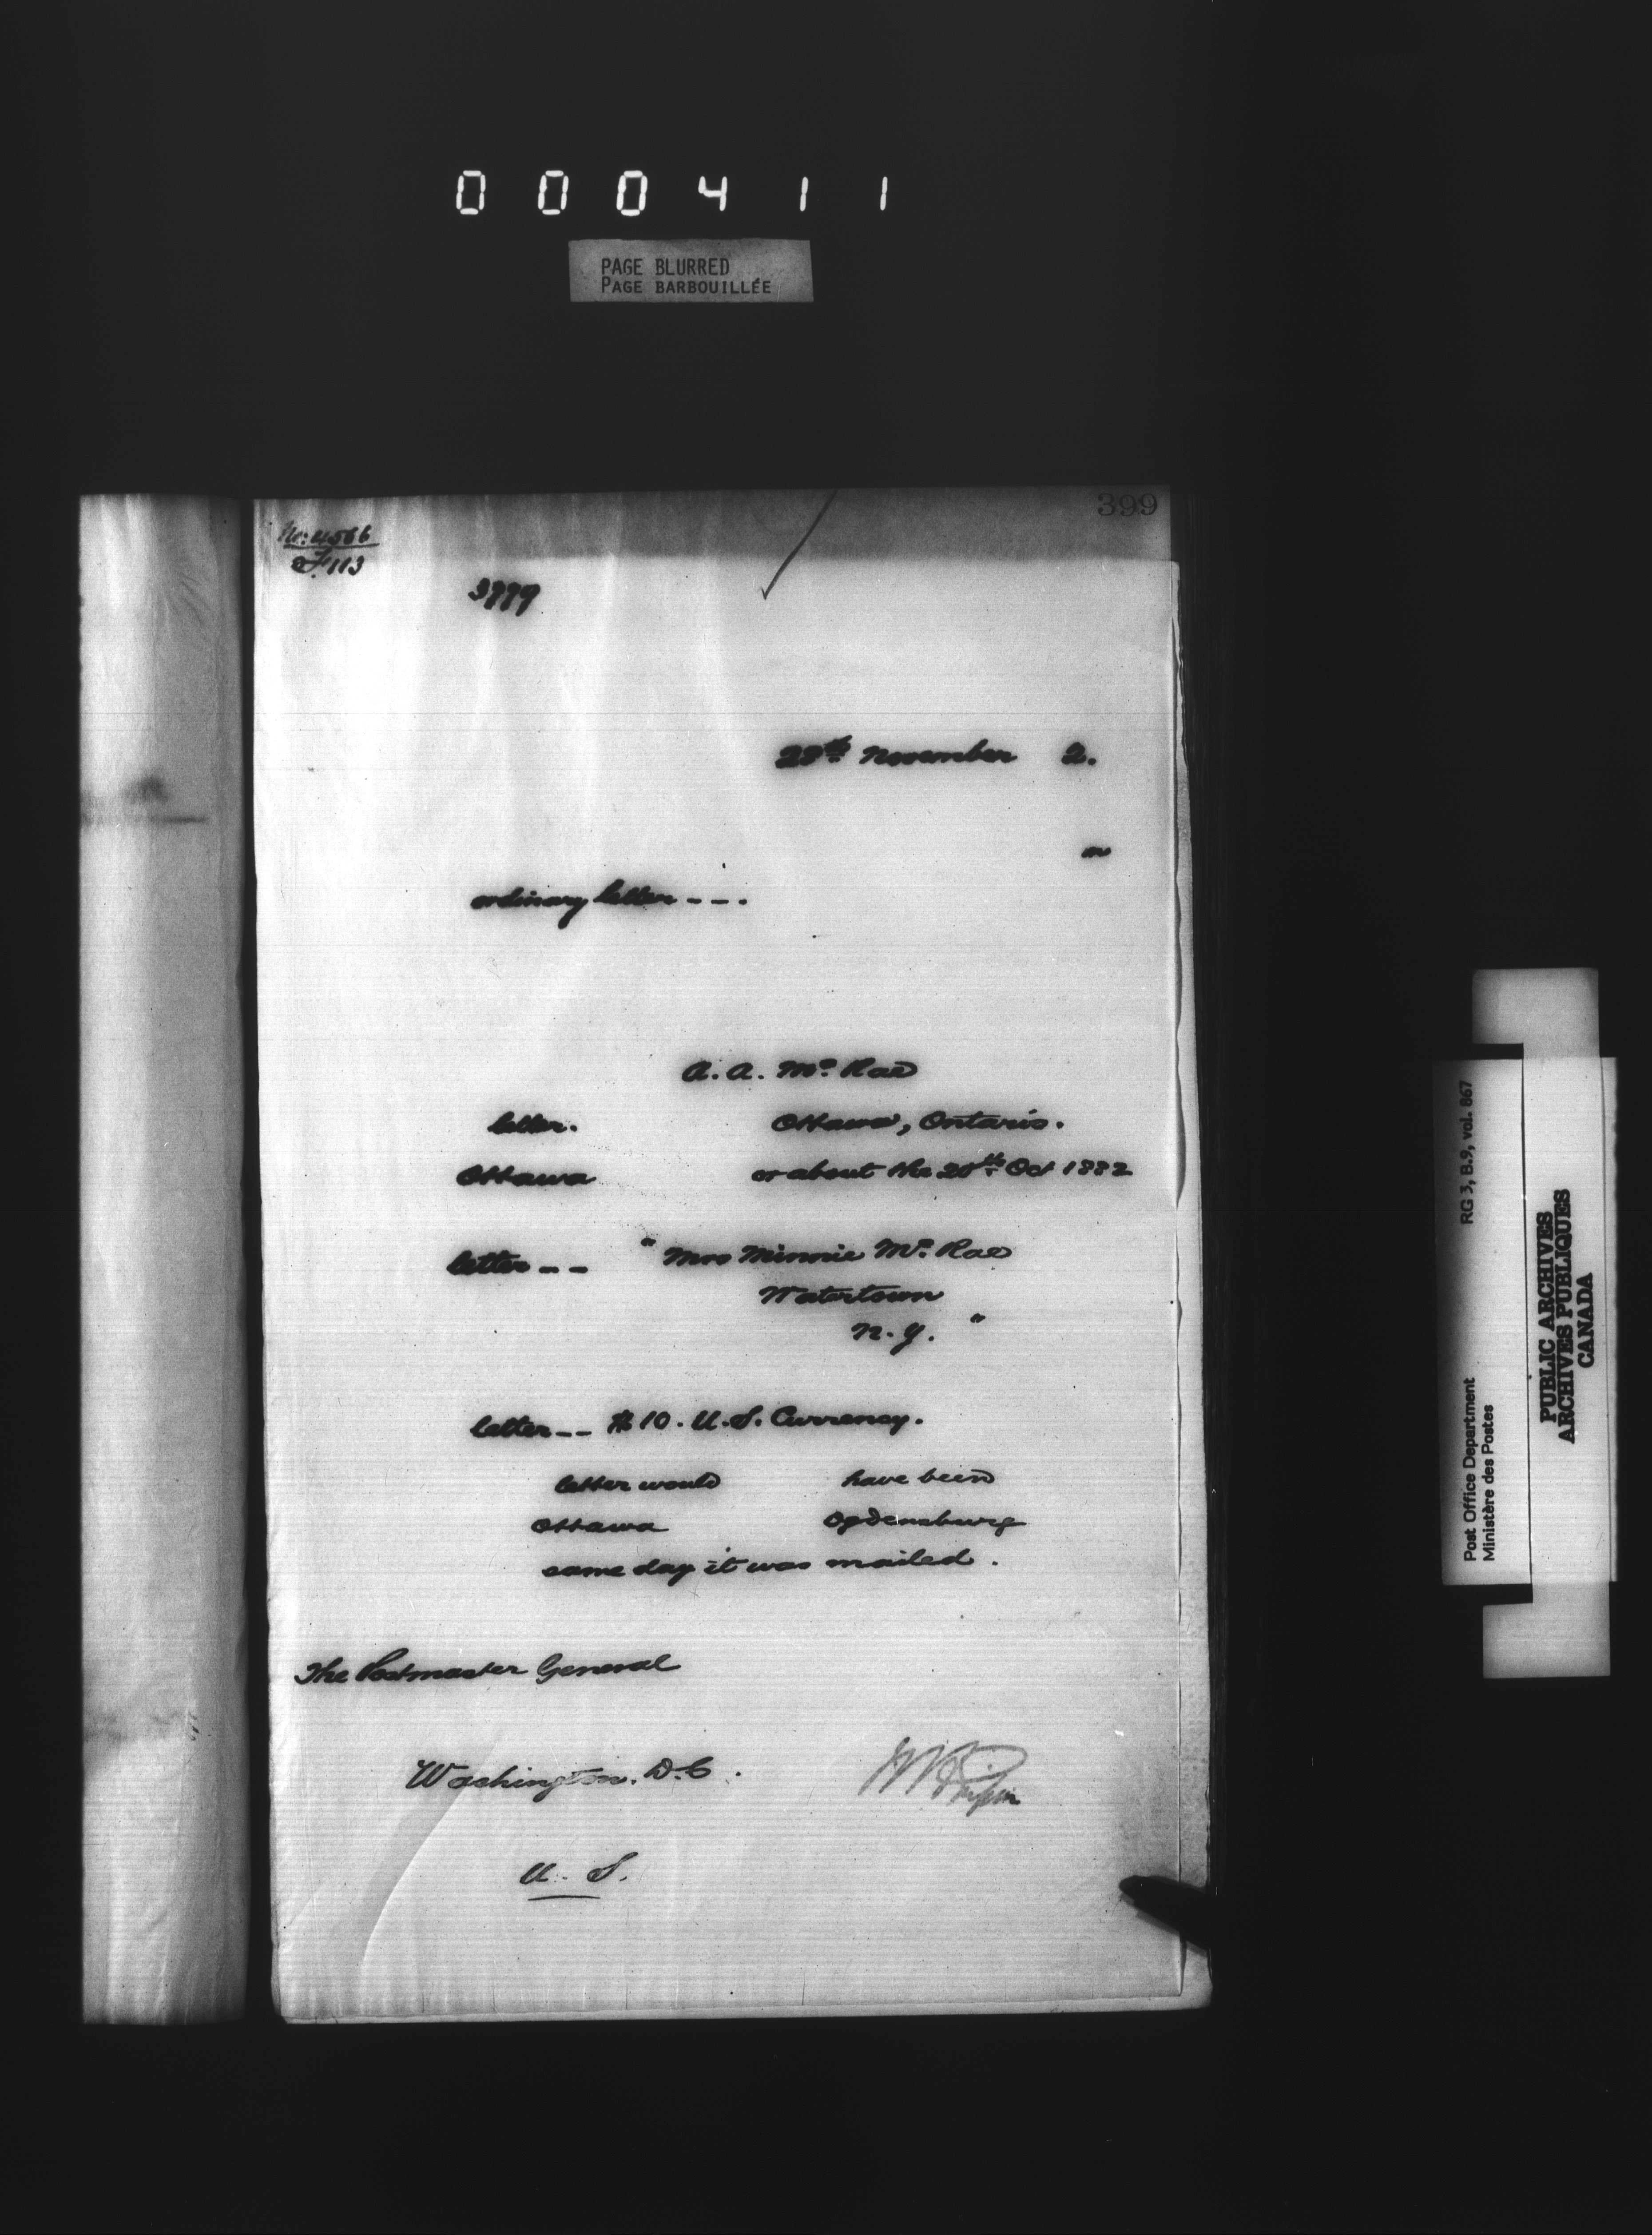 000411
PAGE BLURRED
PAGE BARBOUILLÉE
399
No: 4566
F. 113
3779
28th November 2.
an
ordinary letter - - .
A. A. Mc Rae
letter. Ottawa, Ontario.
Ottawa or about the 20th Oct 1882
letter - - " Mrs Minnie Mc Rae
Watertown
N. Y. "
letter - - $10. U.S. Currency.
letter would have been
Ottawa Ogdensburg
same day it was mailed.
The Postmaster General
Washington. D.C.
U. S.
RG 3, B.9, vol. 867
Post Office Department
Ministère des Postes
PUBLIC ARCHIVES
ARCHIVES PUBLIQUES
CANADA